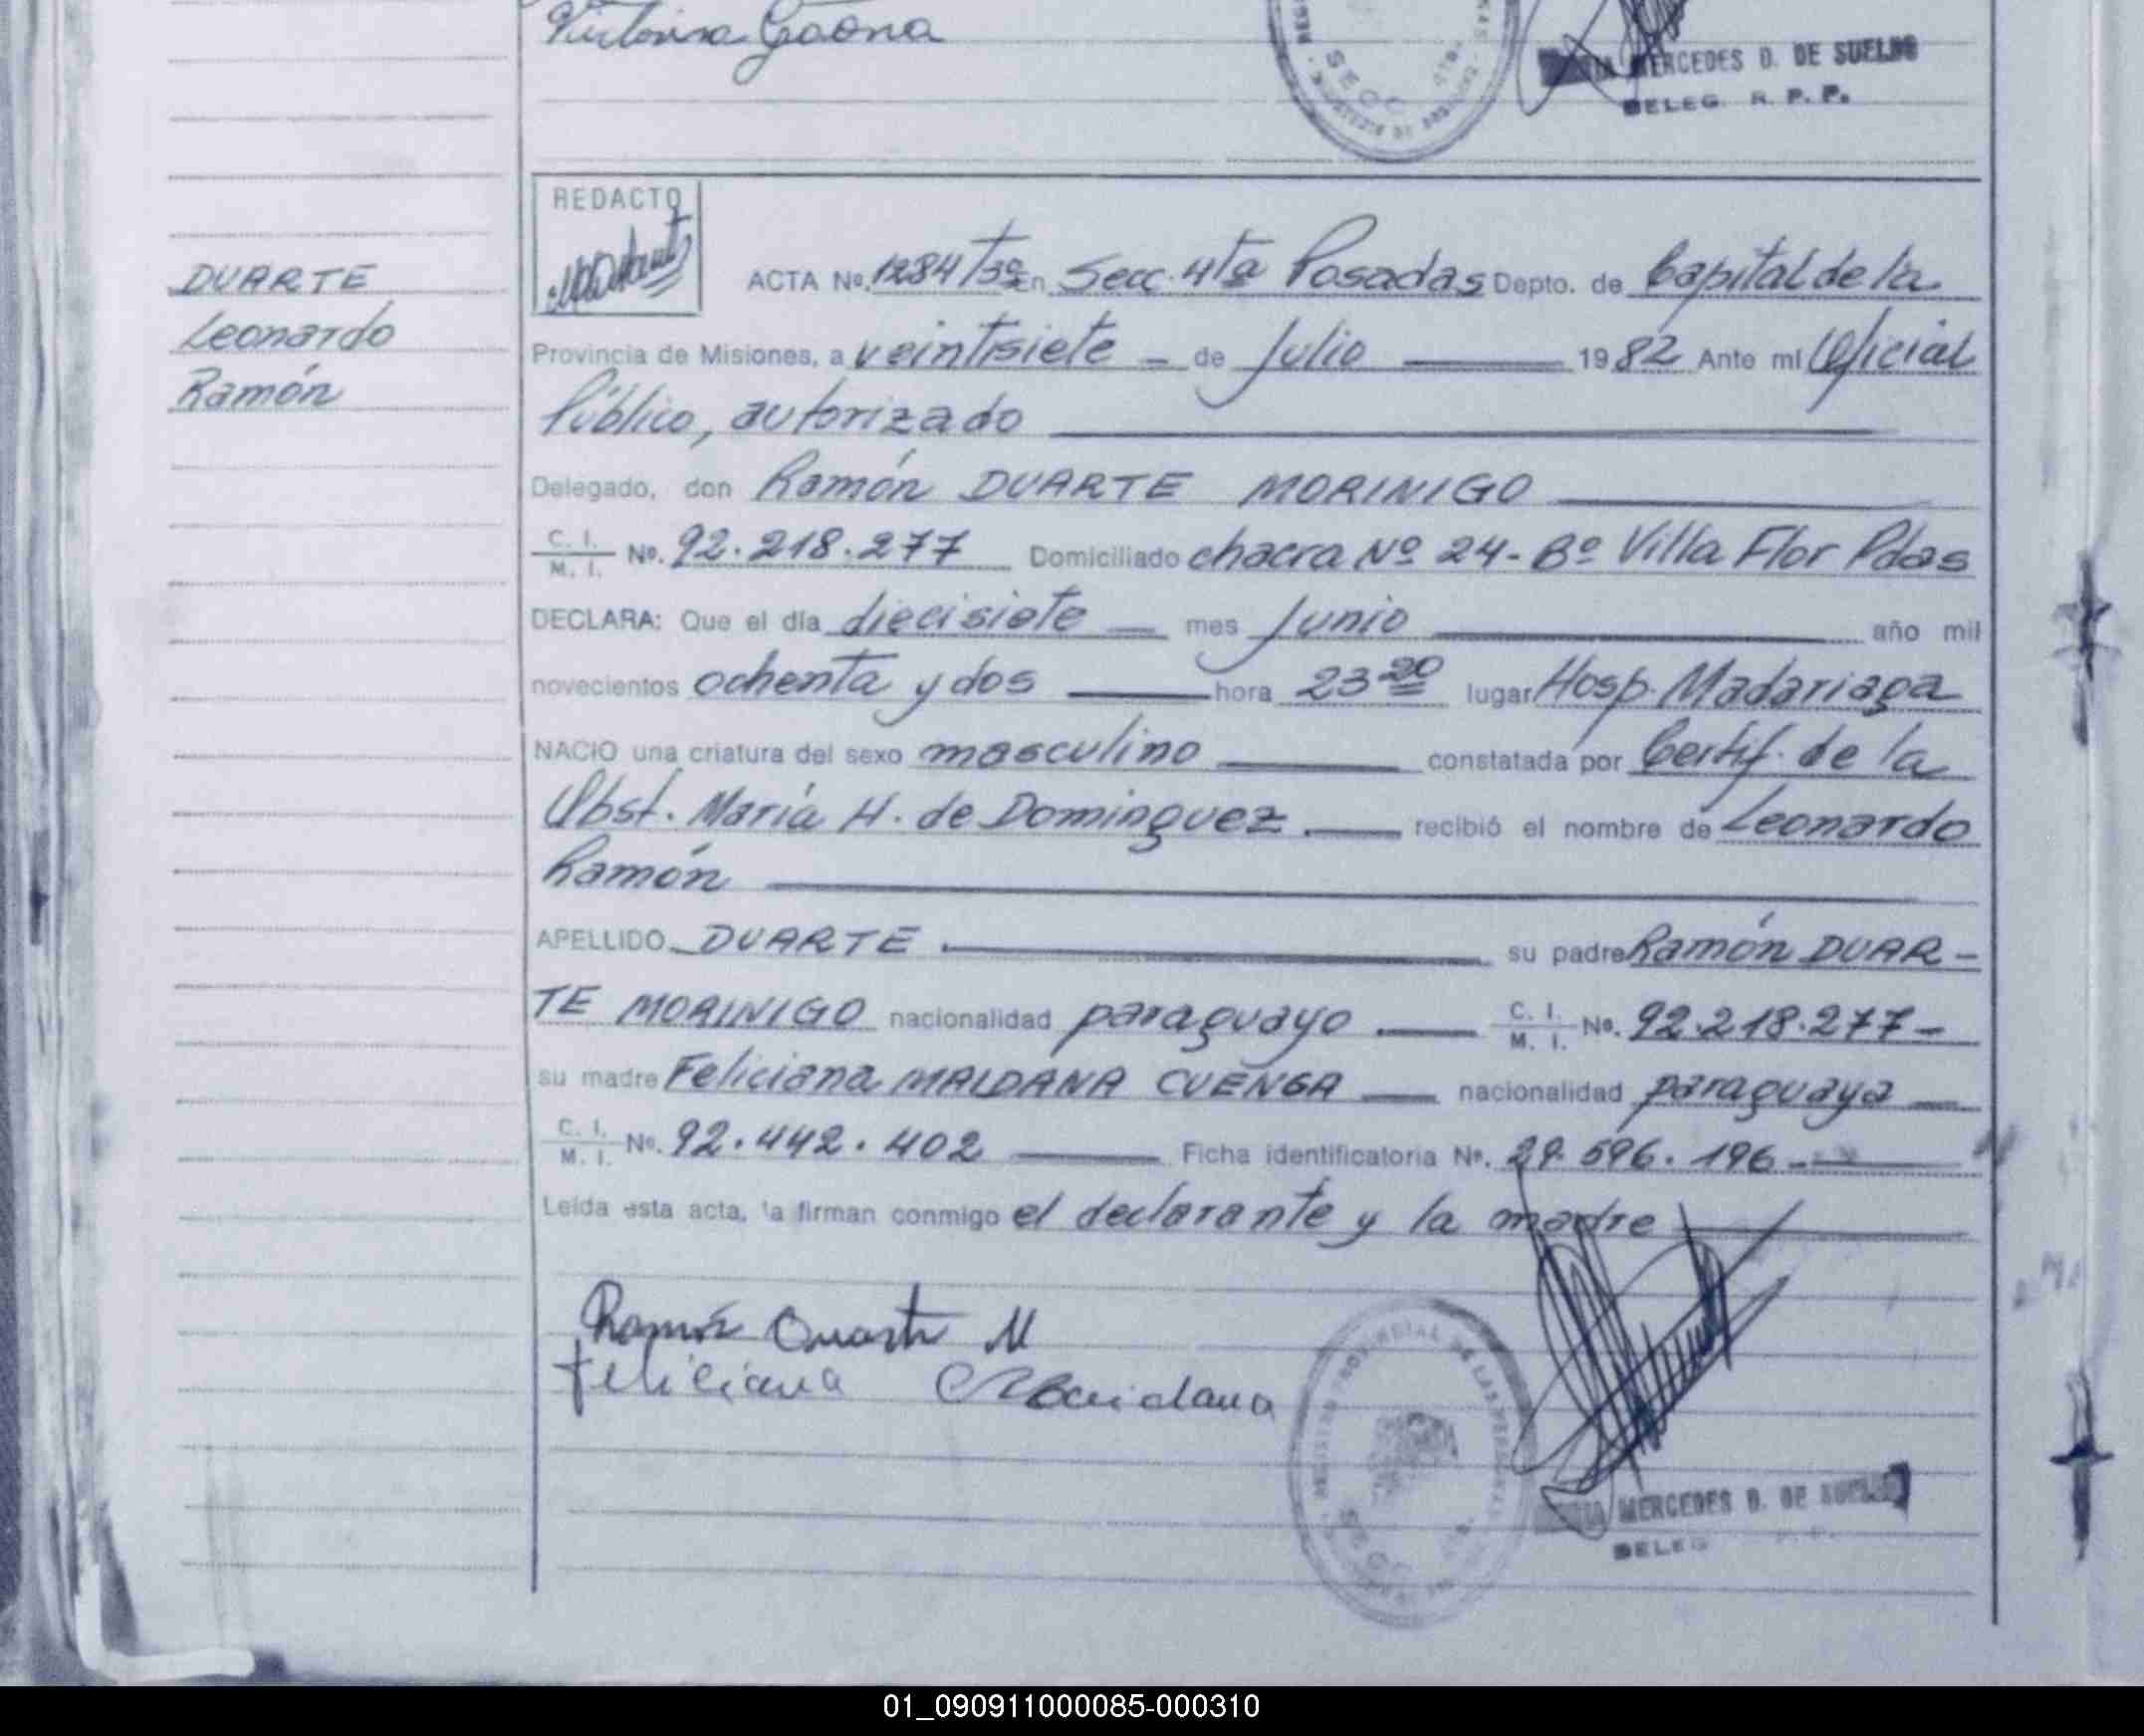 Victorina Gaona
MERCEDES D. DE SUELDO
DELEG. R. P. P.
REDACTO
DUARTE
Leonardo
Ramón
ACTA No. 1284/3º En Secc. 4ta Posadas Depto. de Capital de la
Provincia de Misiones, a veintisiete - de Julio 1982 Ante mi Oficial
Público, autorizado
Delegado, don Ramón DUARTE MORINIGO
C. I. / M. I. No. 92.218.277 Domiciliado chacra Nº 24 - Bº Villa Flor Pdas
DECLARA: Que el día diecisiete - mes Junio año mil
novecientos ochenta y dos hora 23 20 lugar Hosp. Madariaga
NACIO una criatura del sexo masculino constatada por Certif. de la
Obst. María H. de Dominguez recibió el nombre de Leonardo
Ramón
APELLIDO DUARTE su padre Ramón DUAR-
TE MORINIGO nacionalidad paraguayo C. I. / M. I. No. 92.218.277-
su madre Feliciana MAIDANA CUENGA nacionalidad paraguaya
C. I. / M. I. No. 92.442.402 Ficha identificatoria No. 29.596.196-
Leída esta acta, la firman conmigo el declarante y la madre
Ramón Duarte M
Feliciana Maidana
REGISTRO PROVINCIAL DE LAS PERSONAS
MERCEDES D. DE SUELDO
DELEG. R. P. P.
01_090911000085-000310